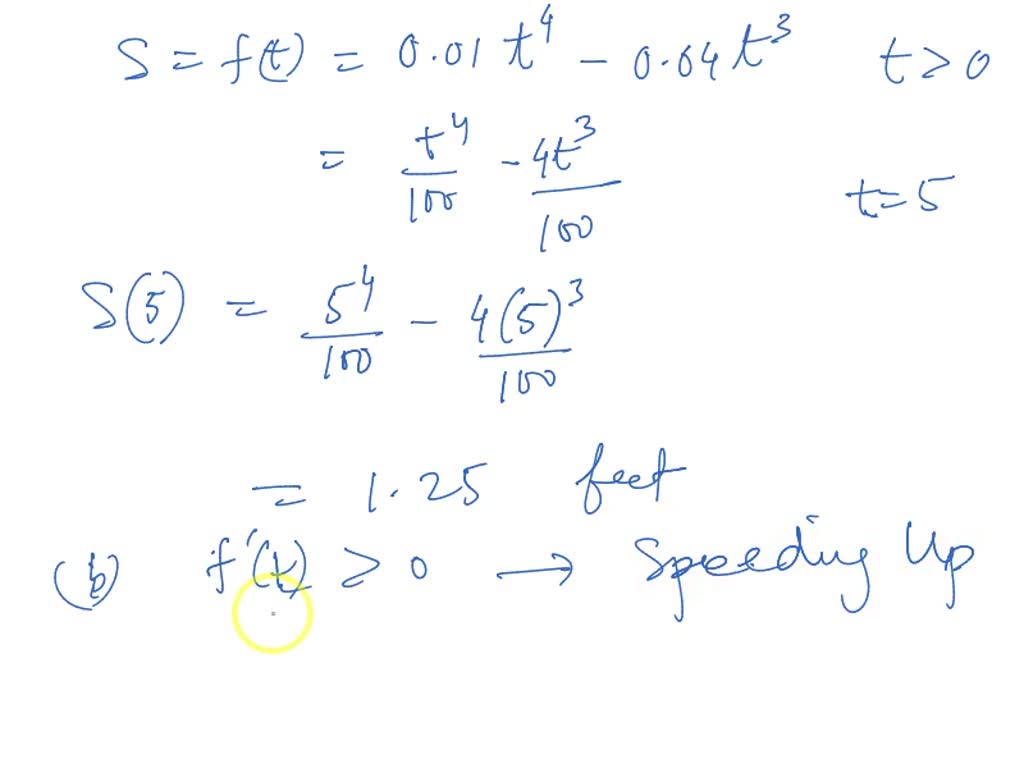 S = f(t) = 0.01 t⁴ - 0.04 t³ t > 0
= t⁴/100 - 4t³/100 t = 5
S(5) = 5⁴/100 - 4(5)³/100
= 1.25 feet
(b) f'(t) > 0 → Speeding Up